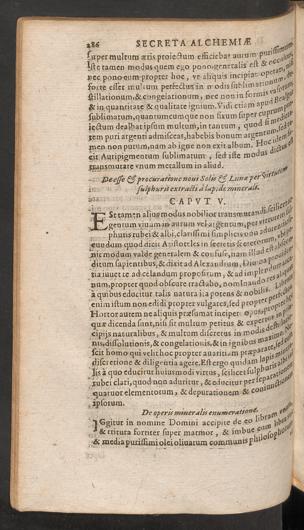 286 SECRETA ALCHEMIÆ
super multum æris proiectum efficiebat aurum purissimum.
Iste tamen modus quem ego pono generalis est & occultus,
nec pono eum propter hoc, ve aliquis incipiat operari, nisi
forte esset multum perfectus in modis sublimationum, di-
stillationum, & congelationum, nec non in formis vasorum,
& in quantitate & qualitate ignium. Vidi etiam apud
sublimatum, quantumcumque non fixum super cuprum pro-
iectum dealbat ipsum multum, in tantum, quod si
tem puri argenti admisceat, habebis bonum argentum, sed ta-
men non purum, nam ab igne non exit album. Hoc idem
cit Auripigmentum sublimatum, sed iste modus dictus est
transmutare vnum metallum in aliud.
De esse & procuratione noui Solis & Lunæ per virtutem
sulphuris extracti à lapide minerali.
CAPVT V.
Est tamen alius modus nobilior transmutandi, scilicet
gentum viuum in aurum vel argentum, per virtutem
phuris rubei & albi, clarissimi simplicis non adurentis,
quemadmodum docuit Aristoteles in secretis secretorum,
nis modum valde generalem & confusum, nam illud est absco-
ditum sapientibus, & dixit ad Alexandrum, Diuina
tia iuuet te ad celandum propositum, & ad implendum
num, propter quod obscure tractabo, nominando res aliquas
à quibus educitur talis natura ita potens & nobilis.
enim istum non edidi propter vulgares, sed propter
Hortor autem ne aliquis præsumat incipere opus, propter
quæ dicenda sunt, nisi sit multum peritus & expertus
cipijs naturalibus, & multum discretus in modis distillatio-
nis, dissolutionis, & congelationis, & in ignibus maxime. Ne-
scit homo qui velit hoc propter auaritiam præparare, sed
discretione & diligentia agere. Est ergo quidam lapis minera-
lis à quo educitur huiusmodi virtus, scilicet sulphuris albi &
rubei clari, quod non aduritur, & educitur per separationem
quatuor elementorum, & depurationem & coniunctionem
ipsorum.
De operis mineralis enumeratione.
IGgitur in nomine Domini accipite de eo libram
& tritura fortiter super marmor, & imbue cum libra
& media purissimi olei oliuarum communis philosophorum